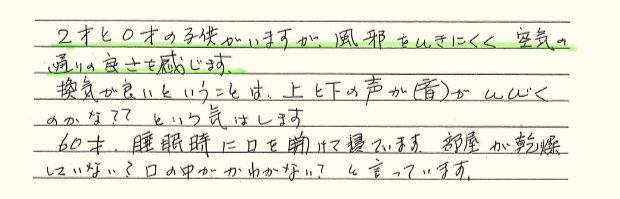 2才と0才の子供がいますが、風邪をひきにくく 空気の
通りの良さを感じます。
換気が良いということは、上と下の声が(音)が ひびく
のかな?? という気はします
60才、睡眠時に口を開けて寝ています。部屋が乾燥
していない?口の中がかわかない?と言っています。